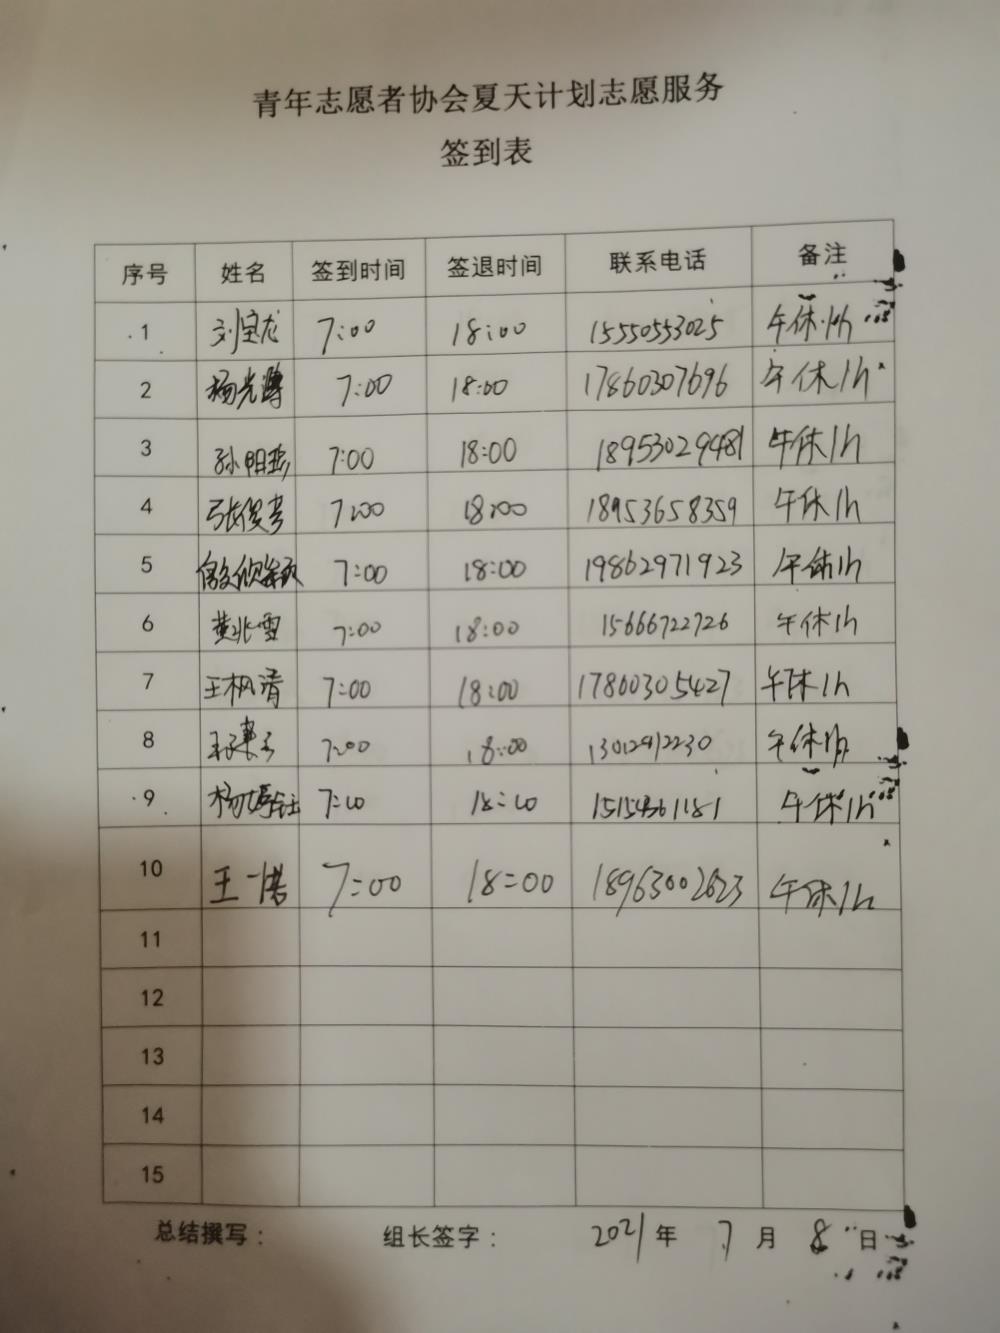 青年志愿者协会夏天计划志愿服务
签到表
序号 姓名 签到时间 签退时间 联系电话 备注
1 刘宝龙 7:00 18:00 15550553025 午休1h
2 杨光 7:00 18:00 17860307696 午休1h
3 孙明 7:00 18:00 18953029481 午休1h
4 张俊 7:00 18:00 18953658359 午休1h
5 7:00 18:00 19862971923 午休1h
6 黄兆雪 7:00 18:00 15666722726 午休1h
7 王枫清 7:00 18:00 17860305427 午休1h
8 7:00 18:00 13012912230 午休1h
9 杨 7:00 18:00 午休1h
10 王一诺 7:00 18:00 18963002623 午休1h
11
12
13
14
15
总结撰写： 组长签字： 2021年 7月 8日